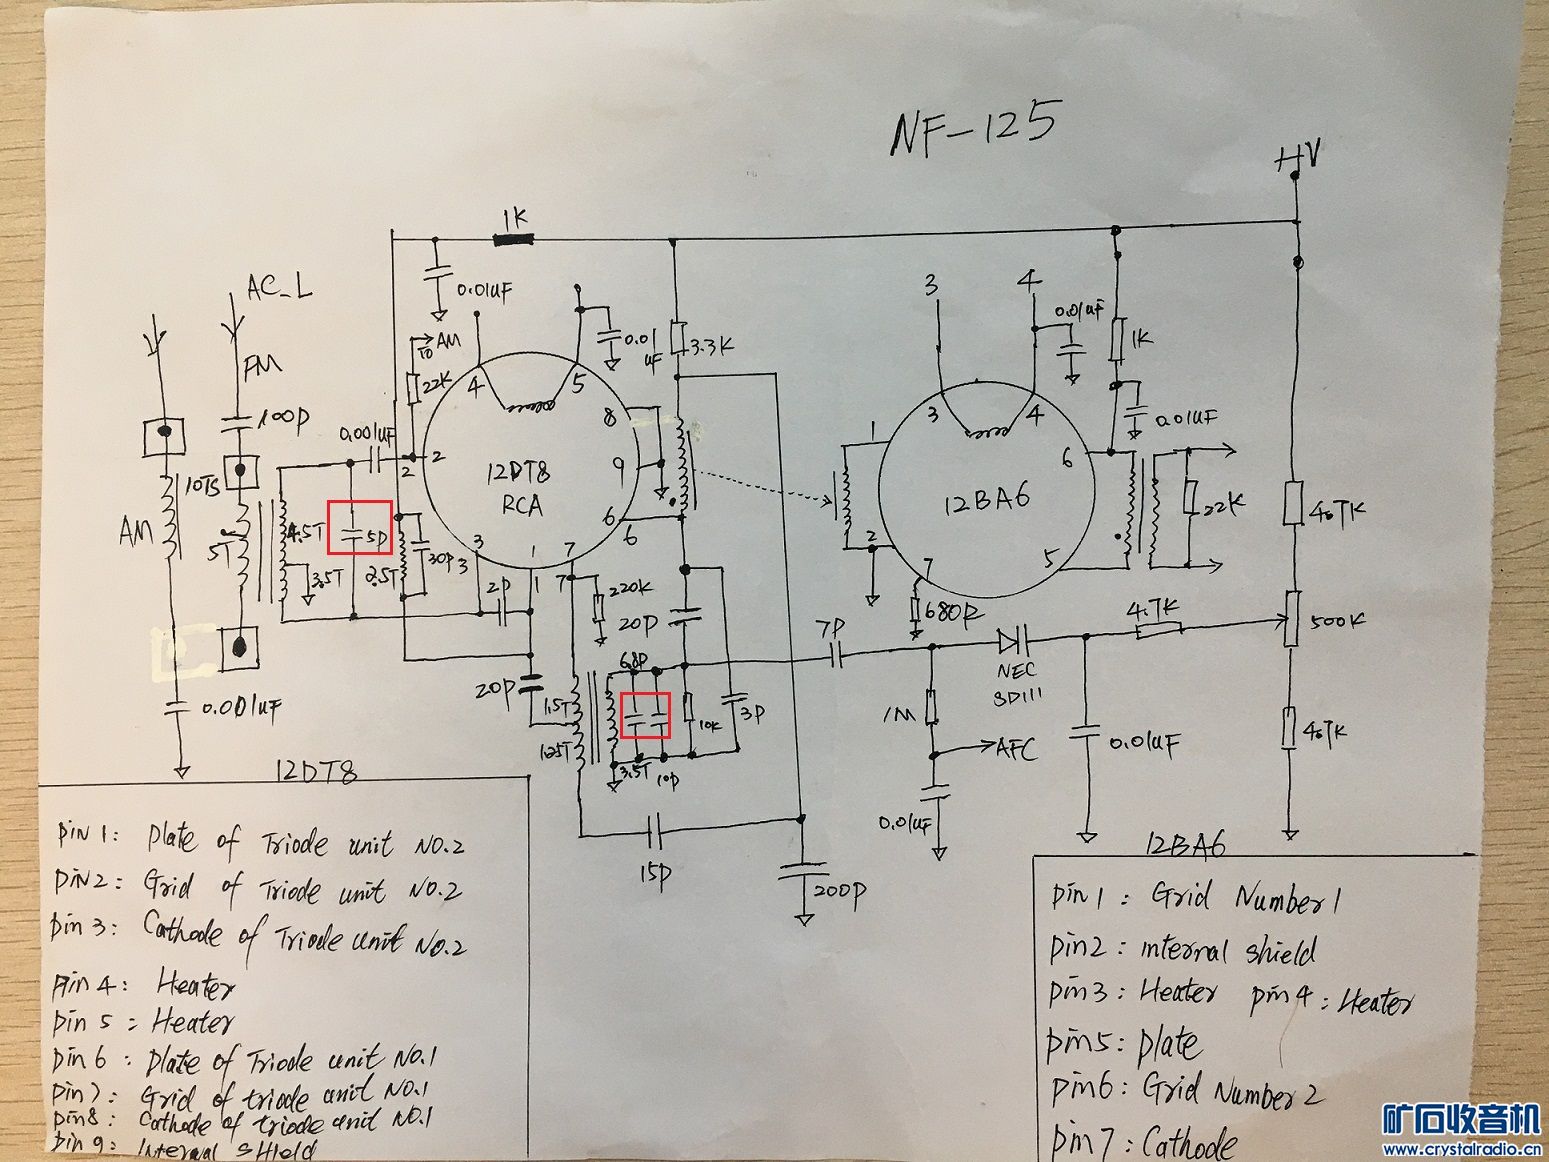 NF-125
HV
1K
AC_L
0.01uF
TO AM
0.01
uF
3.3K
3
4
0.01uF
1K
FM
22K
4
5
8
3
4
0.01uF
100P
0.001uF
2
2
12DT8
RCA
9
1
6
12BA6
22K
4.7K
10TS
AM
5T
4.5T
5P
3.5T
2.5T
30P
6
6
2
5
3
3
1
1
7
7
7
2P
220K
20P
680R
4.7K
500K
7P
NEC
SD111
20P
6.8P
1.5T
1.25T
10K
3P
1M
AFC
0.01uF
4.7K
0.001uF
3.5T
10P
0.01uF
15P
200P
12DT8
Pin 1: Plate of Triode unit NO.2
Pin 2: Grid of Triode unit NO.2
Pin 3: Cathode of Triode unit NO.2
Pin 4: Heater
Pin 5: Heater
Pin 6: Plate of Triode unit NO.1
Pin 7: Grid of triode unit NO.1
Pin 8: Cathode of triode unit NO.1
Pin 9: Internal SHIeld
12BA6
Pin 1: Grid Number 1
Pin 2: internal shield
Pin 3: Heater Pin 4: Heater
Pin 5: Plate
Pin 6: Grid Number 2
Pin 7: Cathode
矿石收音机
www.crystalradio.cn